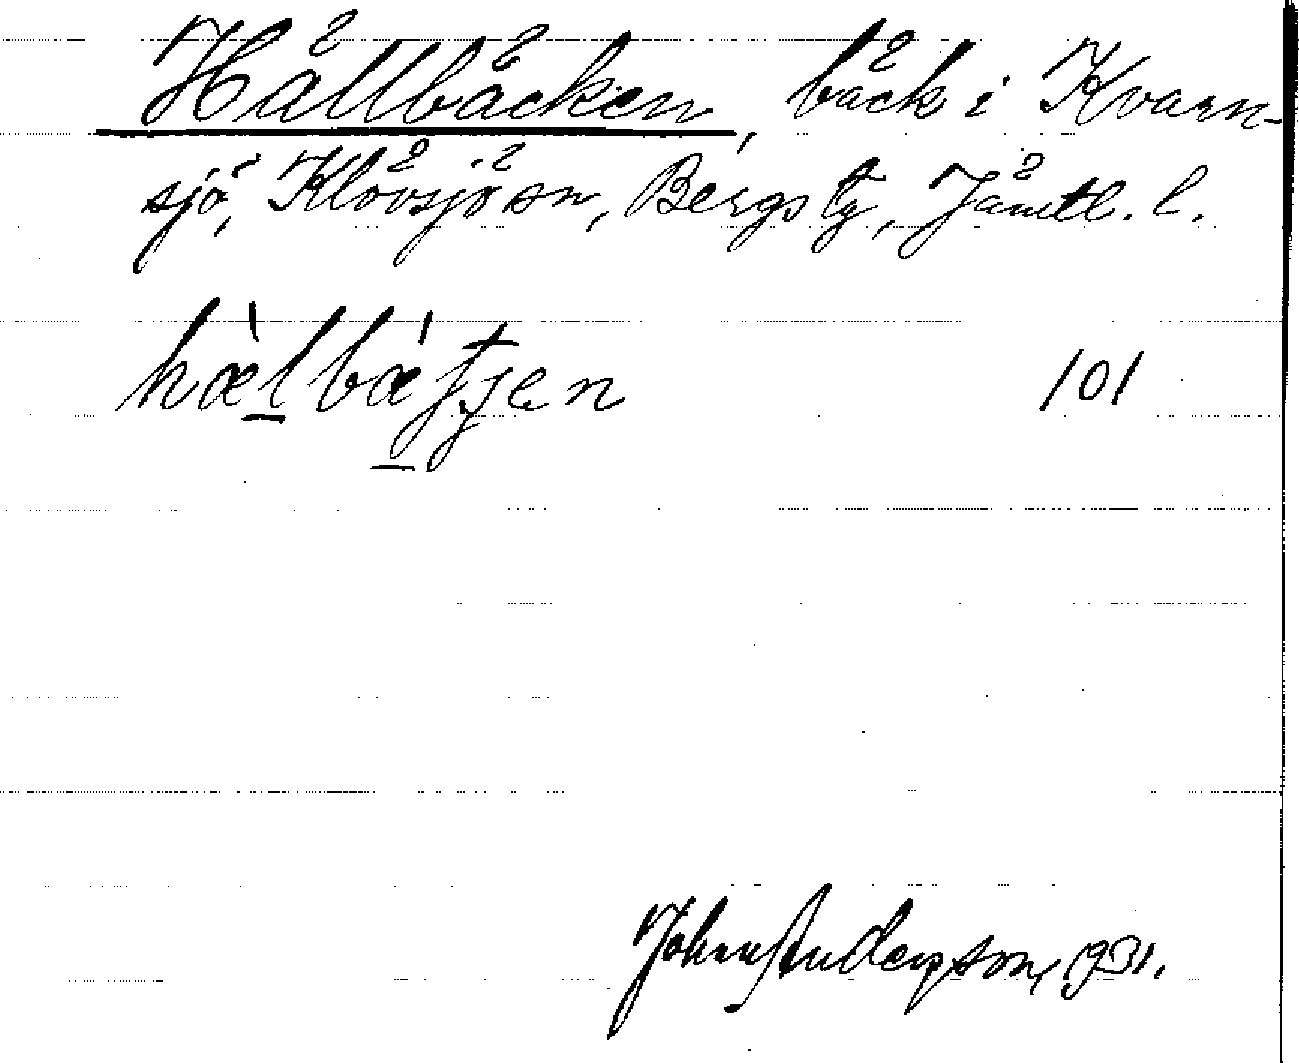 Hällbäcken, bäck i Kvarn-
sjö, Klövsjö sn, Bergs tg, Jämtl. l.
hæ̀lbæ̀ttjen 101
John Anderson, 1931.